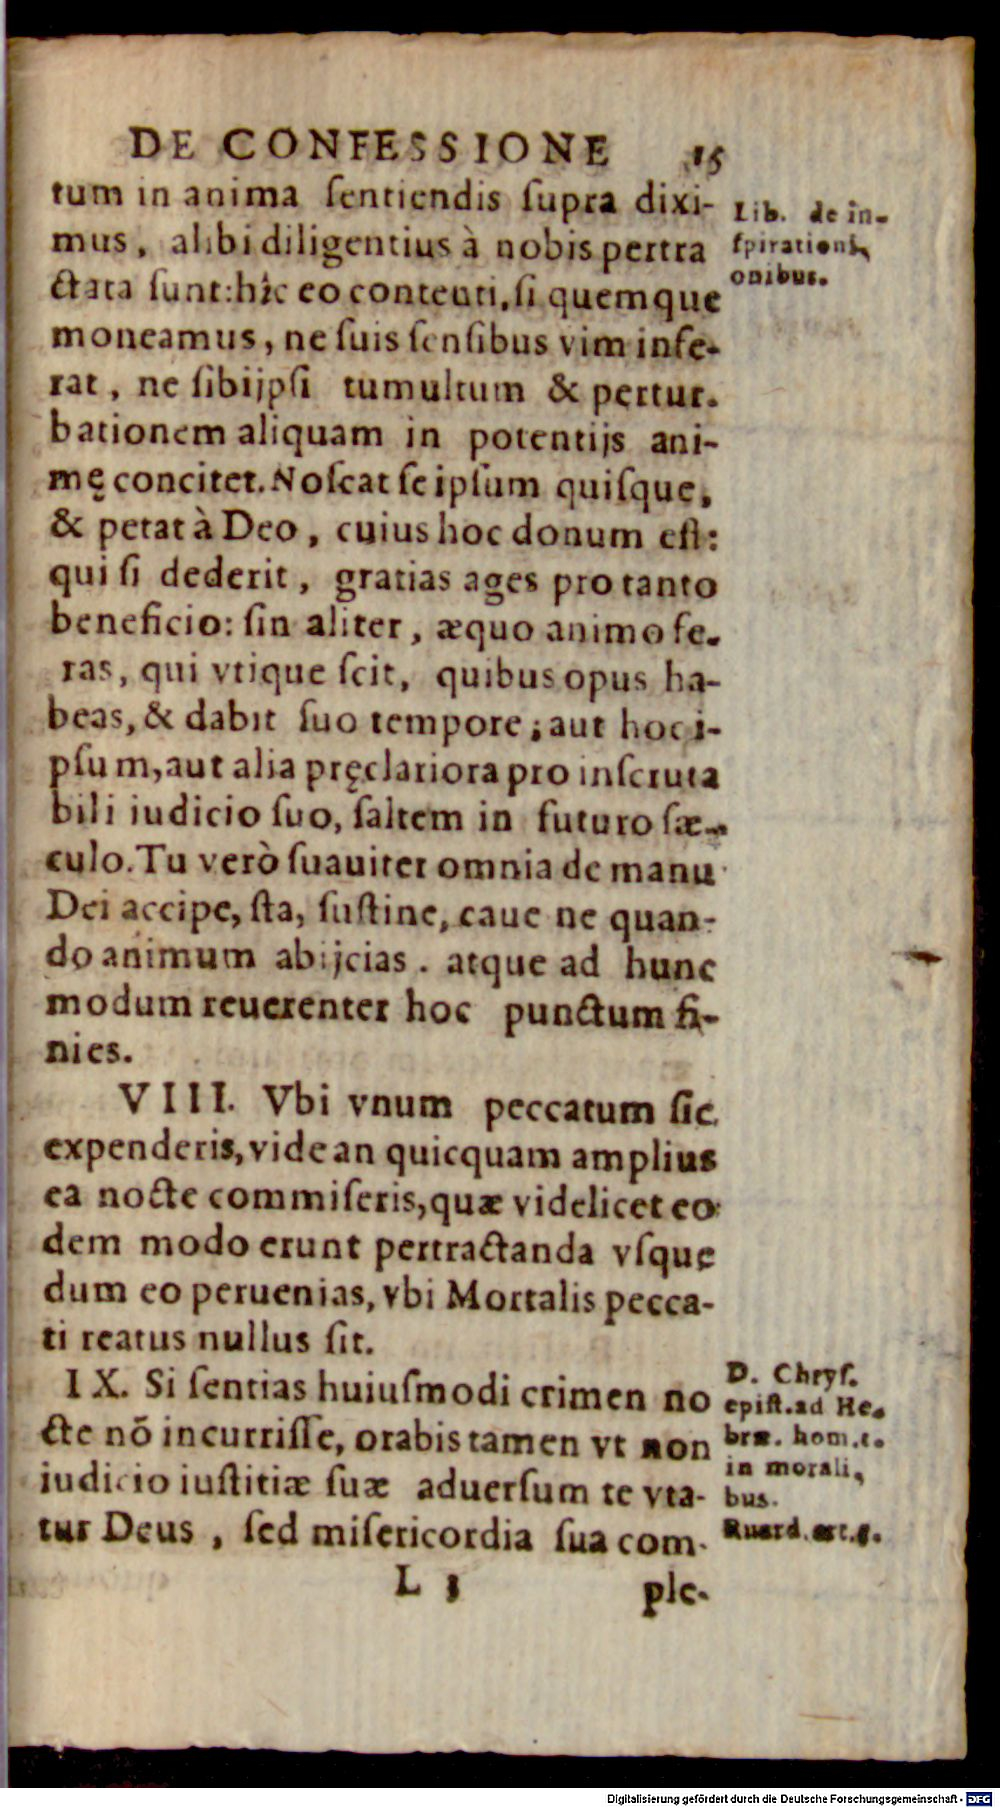 DE CONFESSIONE 15
tum in anima ſentiendis ſupra dixi-
mus, alibi diligentius à nobis pertra
ctata ſunt: hîc eo contenti, ſi quemque
moneamus, ne ſuis ſenſibus vim infe-
rat, ne ſibiipſi tumultum & pertur-
bationem aliquam in potentijs ani-
mę concitet. Noſcat ſe ipſum quiſque,
& petat à Deo, cuius hoc donum eſt:
qui ſi dederit, gratias ages pro tanto
beneficio: ſin aliter, æquo animo fe-
ras, qui vtique ſcit, quibus opus ha-
beas, & dabit ſuo tempore; aut hoc i-
pſum, aut alia pręclariora pro inſcruta
bili iudicio ſuo, ſaltem in futuro ſæ-
culo. Tu verò ſuauiter omnia de manu
Dei accipe, ſta, ſuſtine, caue ne quan-
do animum abijcias. atque ad hunc
modum reuerenter hoc punctum fi-
nies.
VIII. Vbi vnum peccatum ſic
expenderis, vide an quicquam amplius
ea nocte commiſeris, quæ videlicet eo-
dem modo erunt pertractanda vſque
dum eo peruenias, vbi Mortalis pecca-
ti reatus nullus ſit.
IX. Si ſentias huiuſmodi crimen no
cte nõ incurriſſe, orabis tamen vt non
iudicio iuſtitiæ ſuæ aduerſum te vta-
tur Deus, ſed miſericordia ſua com-
L 3 ple-
Lib. de in-
ſpirationi,
onibus.
D. Chryſ.
epiſt. ad He-
bræ. hom.
in morali,
bus.
Ruard. art.
Digitalisierung gefördert durch die Deutsche Forschungsgemeinschaft - DFG